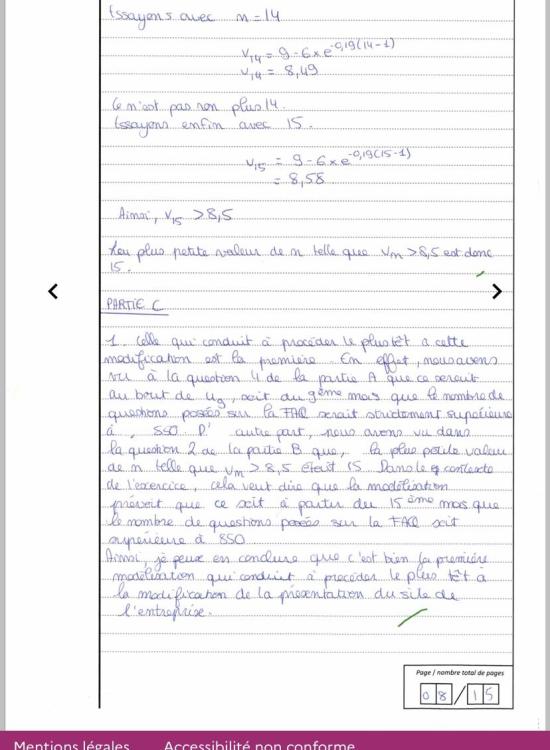 Essayons avec n = 14
v₁₄ = 9 - 6 x e^-0,19(14-1)
v₁₄ = 8,49
Ce n'est pas non plus 14.
Essayons enfin avec 15.
v₁₅ = 9 - 6 x e^-0,19(15-1)
= 8,58
Ainsi, v₁₅ > 8,5
plus petite valeur de n telle que vₙ > 8,5 est donc
15.
PARTIE C
1. Celle qui conduit à procéder le plus tôt a cette
modification est la première. En effet, nous avons
vu à la question 4 de la partie A que ce serait
au bout de u₉, soit du 9ème mois que le nombre de
questions posées sur la FAQ serait strictement supérieure
à, 850. D'autre part, nous avons vu dans
la question 2 de la partie B que, la plus petite valeur
de n telle que vₙ > 8,5 était 15. Dans le contexte
de l'exercice, cela veut dire que la modélisation
prévoit que ce soit à partir du 15ème mois que
le nombre de questions posées sur la FAQ soit
supérieure à 850.
Ainsi, je peux en conclure que c'est bien la première
modélisation qui conduit à procéder le plus tôt à
la modification de la présentation du site de
l'entreprise.
Page / nombre total de pages
08/15
Mentions légales Accessibilité non conforme